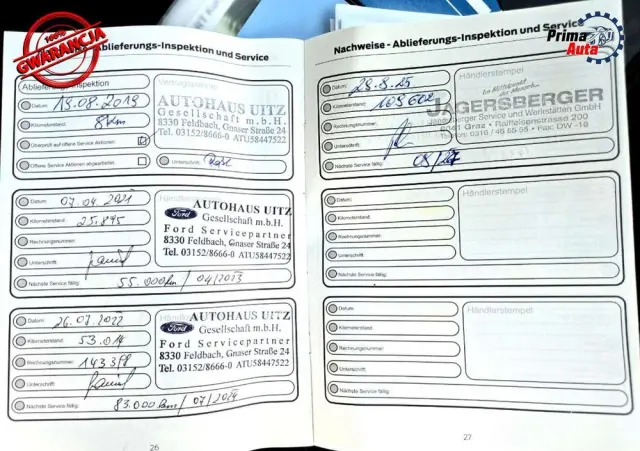 100%
GWARANCJA
Prima
Auto
Ablieferungs-Inspektion und Service
Ablieferung
Datum: 19.08.2019
Kilometerstand: 8km
Überprüft auf offene Service Aktionen:
Offene Service Aktionen abgearbeitet:
AUTOHAUS UITZ
Gesellschaft m.b.H.
8330 Feldbach, Gnaser Straße 24
Tel. 03152/8666-0 ATU58447522
Unterschrift:
Datum: 07.04.2021
Kilometerstand: 25.895
Rechnungsnummer:
Unterschrift:
Nächste Service fällig: 55.000km / 04/2023
Ford
AUTOHAUS UITZ
Gesellschaft m.b.H.
Ford Servicepartner
8330 Feldbach, Gnaser Straße 24
Tel. 03152/8666-0 ATU58447522
Datum: 26.07.2022
Kilometerstand: 53.014
Rechnungsnummer: 143398
Unterschrift:
Nächste Service fällig: 83.000km / 07/2024
Ford
AUTOHAUS UITZ
Gesellschaft m.b.H.
Ford Servicepartner
8330 Feldbach, Gnaser Straße 24
Tel. 03152/8666-0 ATU58447522
26
Nachweise - Ablieferungs-Inspektion und Service
Datum: 29.9.25
Kilometerstand: 109602
Rechnungsnummer:
Unterschrift:
Nächste Service fällig: 09/27
Händlerstempel
JAGERSBERGER
Jagersberger Service und Werkstätten GmbH
8041 Graz • Raiffeisenstrasse 200
Datum:
Kilometerstand:
Rechnungsnummer:
Unterschrift:
Nächste Service fällig:
Händlerstempel
Datum:
Kilometerstand:
Rechnungsnummer:
Unterschrift:
Nächste Service fällig:
Händlerstempel
27